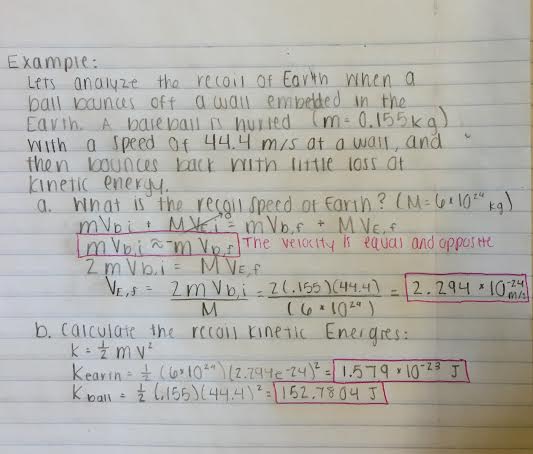 Example:
Lets analyze the recoil of Earth when a
ball bounces off a wall embedded in the
Earth. A baseball is hurled (m= 0.155kg)
with a speed of 44.4 m/s at a wall, and
then bounces back with little loss of
kinetic energy.
a. What is the recoil speed of Earth? (M=6*10²⁴ kg)
mVb,i + MVE,i = mVb,f + MVE,f
mVb,i ≈ -mVb,f The velocity is equal and opposite
2mVb,i = MVE,f
VE,f = 2mVb,i / M = 2(.155)(44.4) / (6*10²⁴) = 2.294 * 10⁻²⁴ m/s
b. Calculate the recoil kinetic Energies:
K = ½ mv²
Kearth = ½ (6*10²⁴)(2.294e-24)² = 1.579 * 10⁻²³ J
Kball = ½ (.155)(44.4)² = 152.7804 J